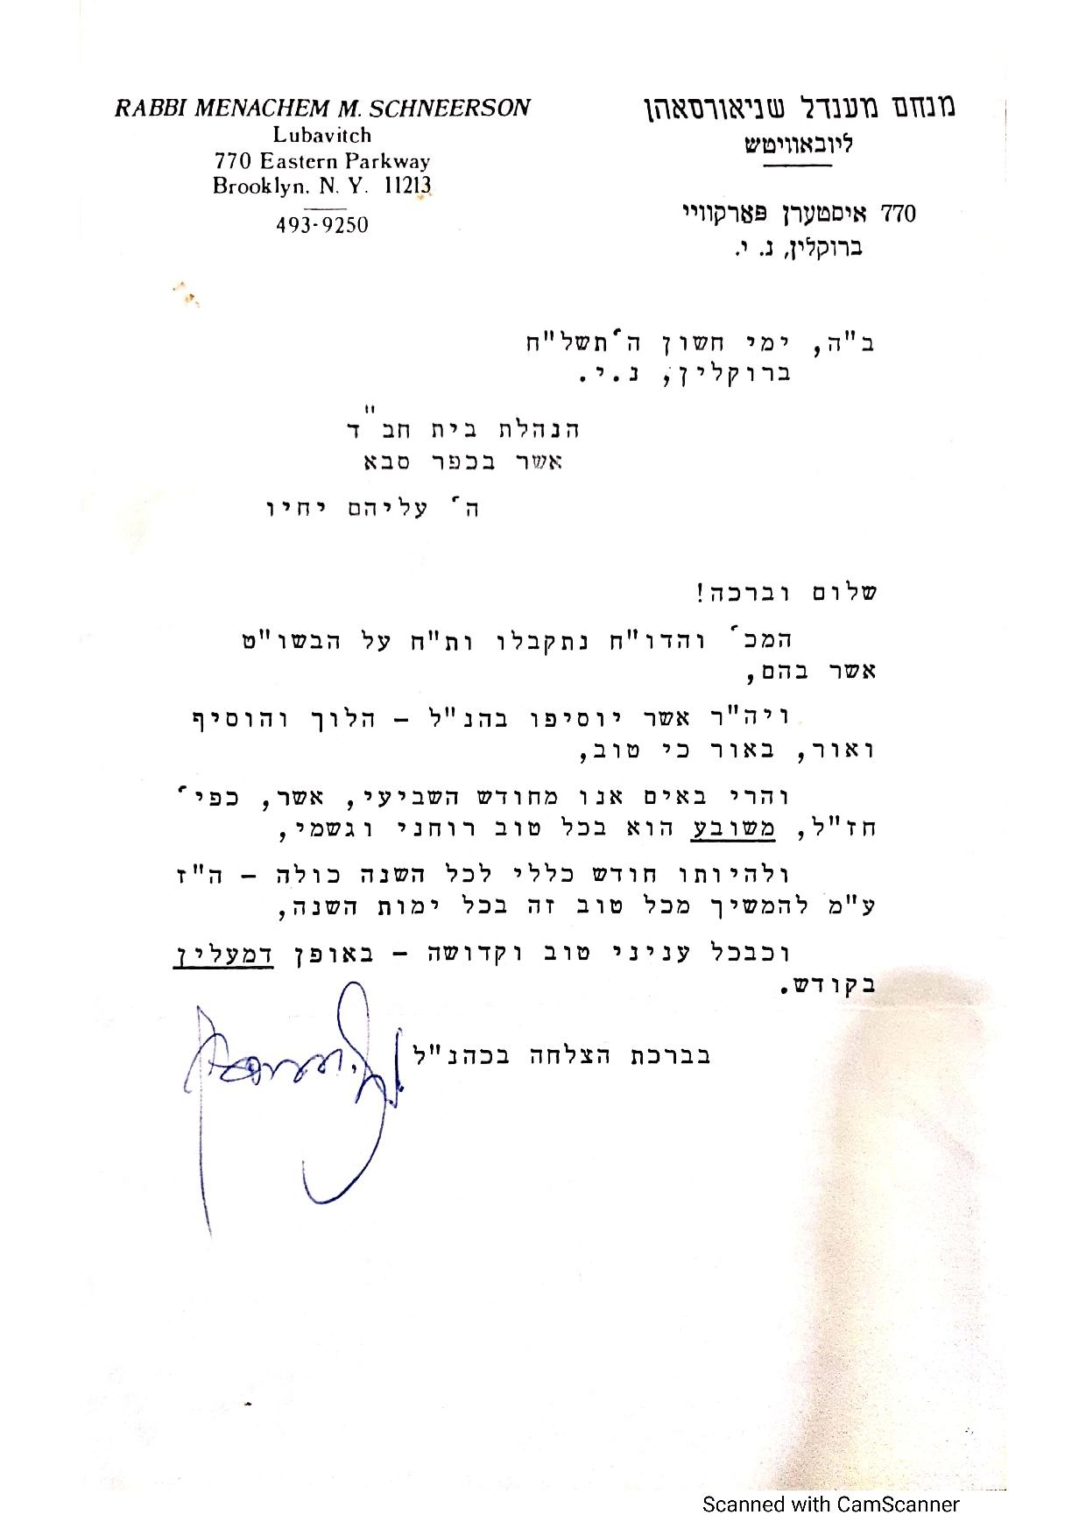 RABBI MENACHEM M. SCHNEERSON
Lubavitch
770 Eastern Parkway
Brooklyn. N. Y. 11213
493-9250
מנחם מענדל שניאורסאהן
ליובאוויטש
770 איסטערן פּאַרקוויי
ברוקלין, נ. י.
ב"ה, ימי חשון ה'תשל"ח
ברוקלין, נ.י.
הנהלת בית חב"ד
אשר בכפר סבא
ה' עליהם יחיו
שלום וברכה!
המכ' והדו"ח נתקבלו ות"ח על הבשו"ט
אשר בהם,
ויה"ר אשר יוסיפו בהנ"ל – הלוך והוסיף
ואור, באור כי טוב,
והרי באים אנו מחודש השביעי, אשר, כפי'
חז"ל, משובע הוא בכל טוב רוחני וגשמי,
ולהיותו חודש כללי לכל השנה כולה – ה"ז
ע"מ להמשיך מכל טוב זה בכל ימות השנה,
וכבכל עניני טוב וקדושה – באופן דמעלין
בקודש.
בברכת הצלחה בכהנ"ל
Scanned with CamScanner